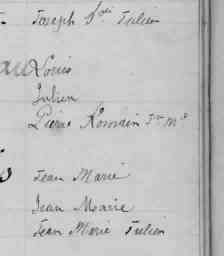 Joseph Julien
Louis
Julien
Pierre Romain
Jean Marie
Jean Marie
Jean Marie Julien